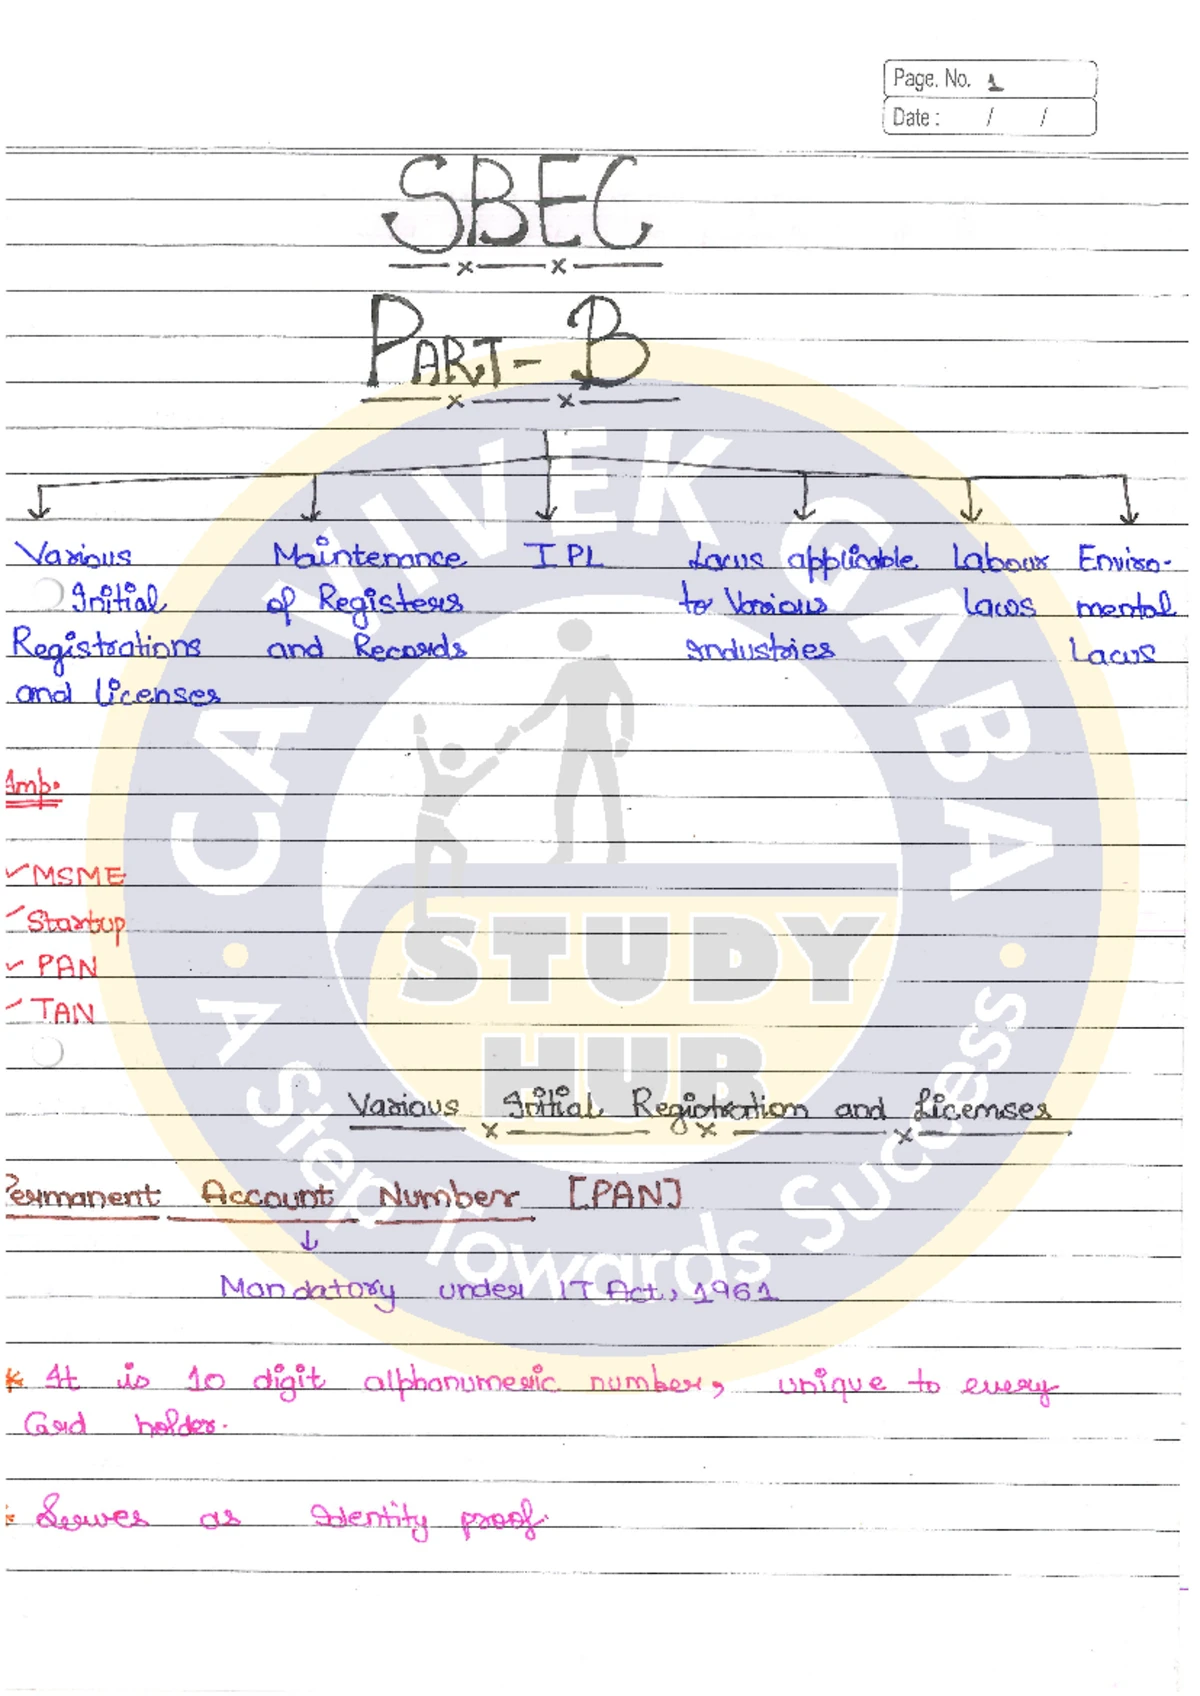 Page. No. 1
Date : / /
SBEC
PART - B
Various Maintenance IPL Laws applicable Labour Enviro-
Initial of Registers to Various Laws mental
Registrations and Records Industries Laws
and Licenses
Imp.
✓ MSME
✓ Startup
✓ PAN
✓ TAN
Various Initial Registration and Licenses
Permanent Account Number [PAN]
↓
Mandatory under IT Act, 1961
* It is 10 digit alphanumeric number, unique to every
Card holder.
* Serves as Identity proof.
CA VIVEK GABA
STUDY
HUB
A Step Towards Success